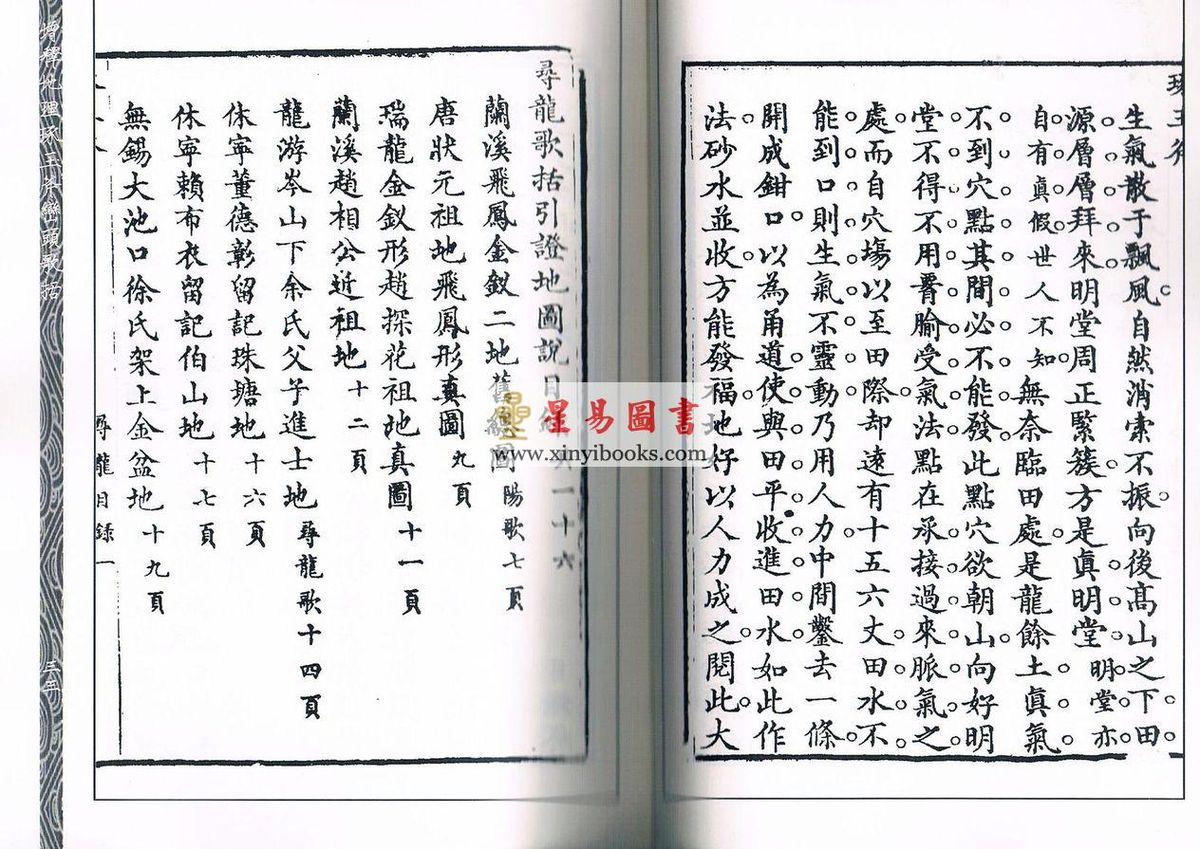 生氣散于飄風自然消索不振向後高山之下田
源層層拜來明堂周正緊簇方是真明堂明堂亦
自有真假世人不知無奈臨田處是龍餘土真氣
不到穴點其間必不能發此點穴欲朝山向好明
堂不得不用脣腧受氣法點在承接過來脈氣之
處而自穴塲以至田際却遠有十五六丈田水不
能到口則生氣不靈動乃用人力中間鑿去一條
開成鉗口以為甬道使與田平收進田水如此作
法砂水並收方能發福地好以人力成之閱此大
尋龍歌括引證地圖說目 一十六
蘭溪飛鳳金釵二地舊 圖陽歌七頁
唐狀元祖地飛鳳形真圖九頁
瑞龍金釵形趙探花祖地真圖十一頁
蘭溪趙相公近祖地十二頁
龍游岑山下余氏父子進士地尋龍歌十四頁
休寧董德彰留記珠塘地十六頁
休寧賴布衣留記伯山地十七頁
無錫大池口徐氏架上金盆地十九頁
尋龍目錄一
三五
星易圖書
www.xinyibooks.com